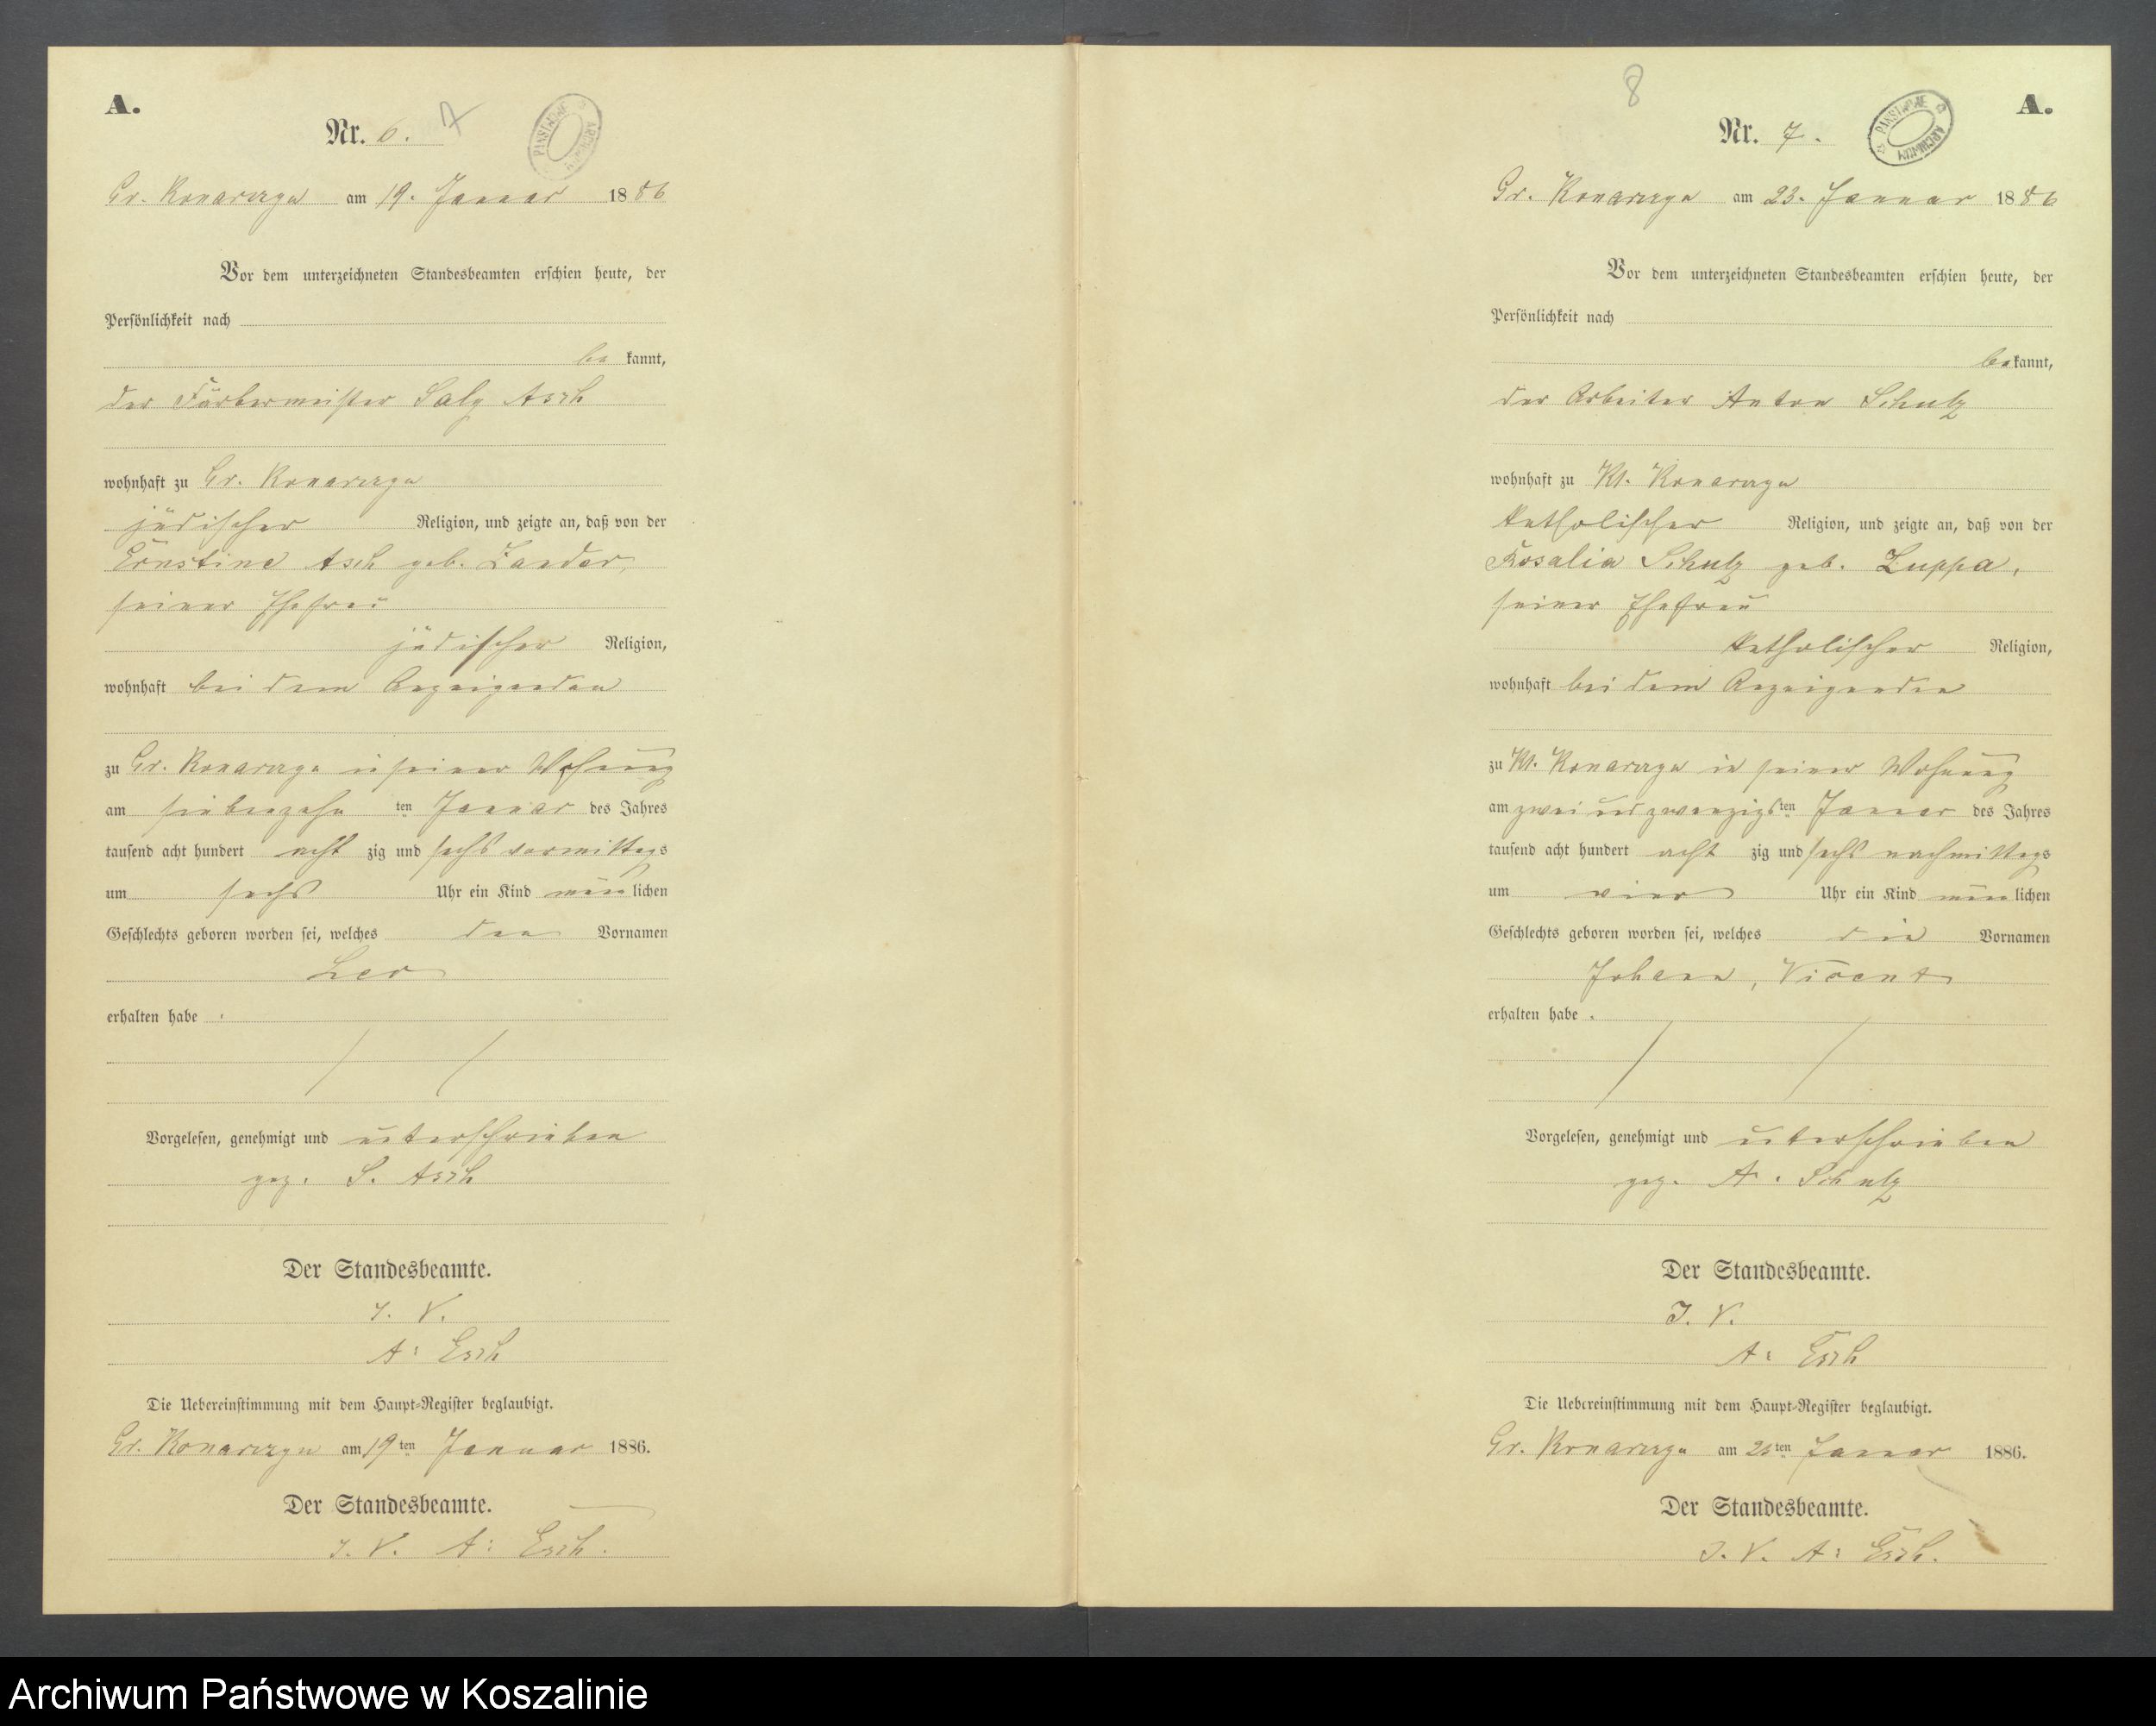 A.
Nr. 6. 7
PAŃSTWOWE ARCHIWUM
Gr. Konarczyn am 19. Januar 1886
Vor dem unterzeichneten Standesbeamten erschien heute, der
Persönlichkeit nach
be kannt,
der Färbermeister Saly Asch
wohnhaft zu Gr. Konarczyn
jüdischer Religion, und zeigte an, daß von der
Ernstine Asch geb. Zander,
seiner Ehefrau
jüdischer Religion,
wohnhaft bei dem Anzeigenden
zu Gr. Konarczyn in seiner Wohnung
am siebenzehn ten Januar des Jahres
tausend acht hundert acht zig und sechs vormittags
um sechs Uhr ein Kind männlichen
Geschlechts geboren worden sei, welches den Vornamen
Leo
erhalten habe .
Vorgelesen, genehmigt und unterschrieben
gez. S. Asch
Der Standesbeamte.
I. V.
A: Esch
Die Uebereinstimmung mit dem Haupt-Register beglaubigt.
Gr. Konarczyn am 19ten Januar 1886.
Der Standesbeamte.
I. V. A: Esch.
8
A.
Nr. 7.
PAŃSTWOWE ARCHIWUM
Gr. Konarczyn am 23. Januar 1886
Vor dem unterzeichneten Standesbeamten erschien heute, der
Persönlichkeit nach
bekannt,
der Arbeiter Anton Schulz
wohnhaft zu Kl. Konarczyn
katholischer Religion, und zeigte an, daß von der
Rosalia Schulz geb. Luppa,
seiner Ehefrau
katholischer Religion,
wohnhaft bei dem Anzeigenden
zu Kl. Konarczyn in seiner Wohnung
am zwei und zwanzigsten Januar des Jahres
tausend acht hundert acht zig und sechs nachmittags
um vier Uhr ein Kind männlichen
Geschlechts geboren worden sei, welches die Vornamen
Johann, Vincent
erhalten habe .
Vorgelesen, genehmigt und unterschrieben
gez. A. Schulz
Der Standesbeamte.
I. V.
A: Esch
Die Uebereinstimmung mit dem Haupt-Register beglaubigt.
Gr. Konarczyn am ten Januar 1886.
Der Standesbeamte.
I. V. A: Esch.
Archiwum Państwowe w Koszalinie